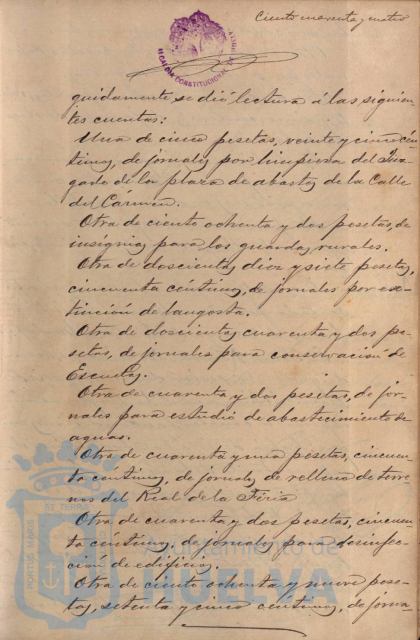 Ciento cuarenta y cuatro
ALCALDIA CONSTITUCIONAL DE HUELVA
guidamente se dió lectura á las siguien
tes cuentas:
Una de cinco pesetas, veinte y cinco cen
timos, de jornales por limpieza del Juz
gado de la plaza de abastos de la Calle
del Carmen.
Otra de ciento ochenta y dos pesetas, de
insignias para los guardas rurales.
Otra de doscientas diez y siete pesetas,
cincuenta céntimos, de jornales por ex-
tinción de langosta.
Otra de doscientas cuarenta y dos pe-
setas, de jornales para conservación de
Escuelas.
Otra de cuarenta y dos pesetas, de jor-
nales para estudio de abastecimiento de
aguas.
Otra de cuarenta y una pesetas, cincuen
ta céntimos, de jornales de relleno de terre
nos del Real de la Feria
Otra de cuarenta y dos pesetas, cincuen
ta céntimos, de jornales para desinfec-
ción de edificios.
Otra de ciento ochenta y nueve pese-
tas, setenta y cinco céntimos, de jorna
PORTUS MARIS ET TERRAE
Ayuntamiento de
HUELVA